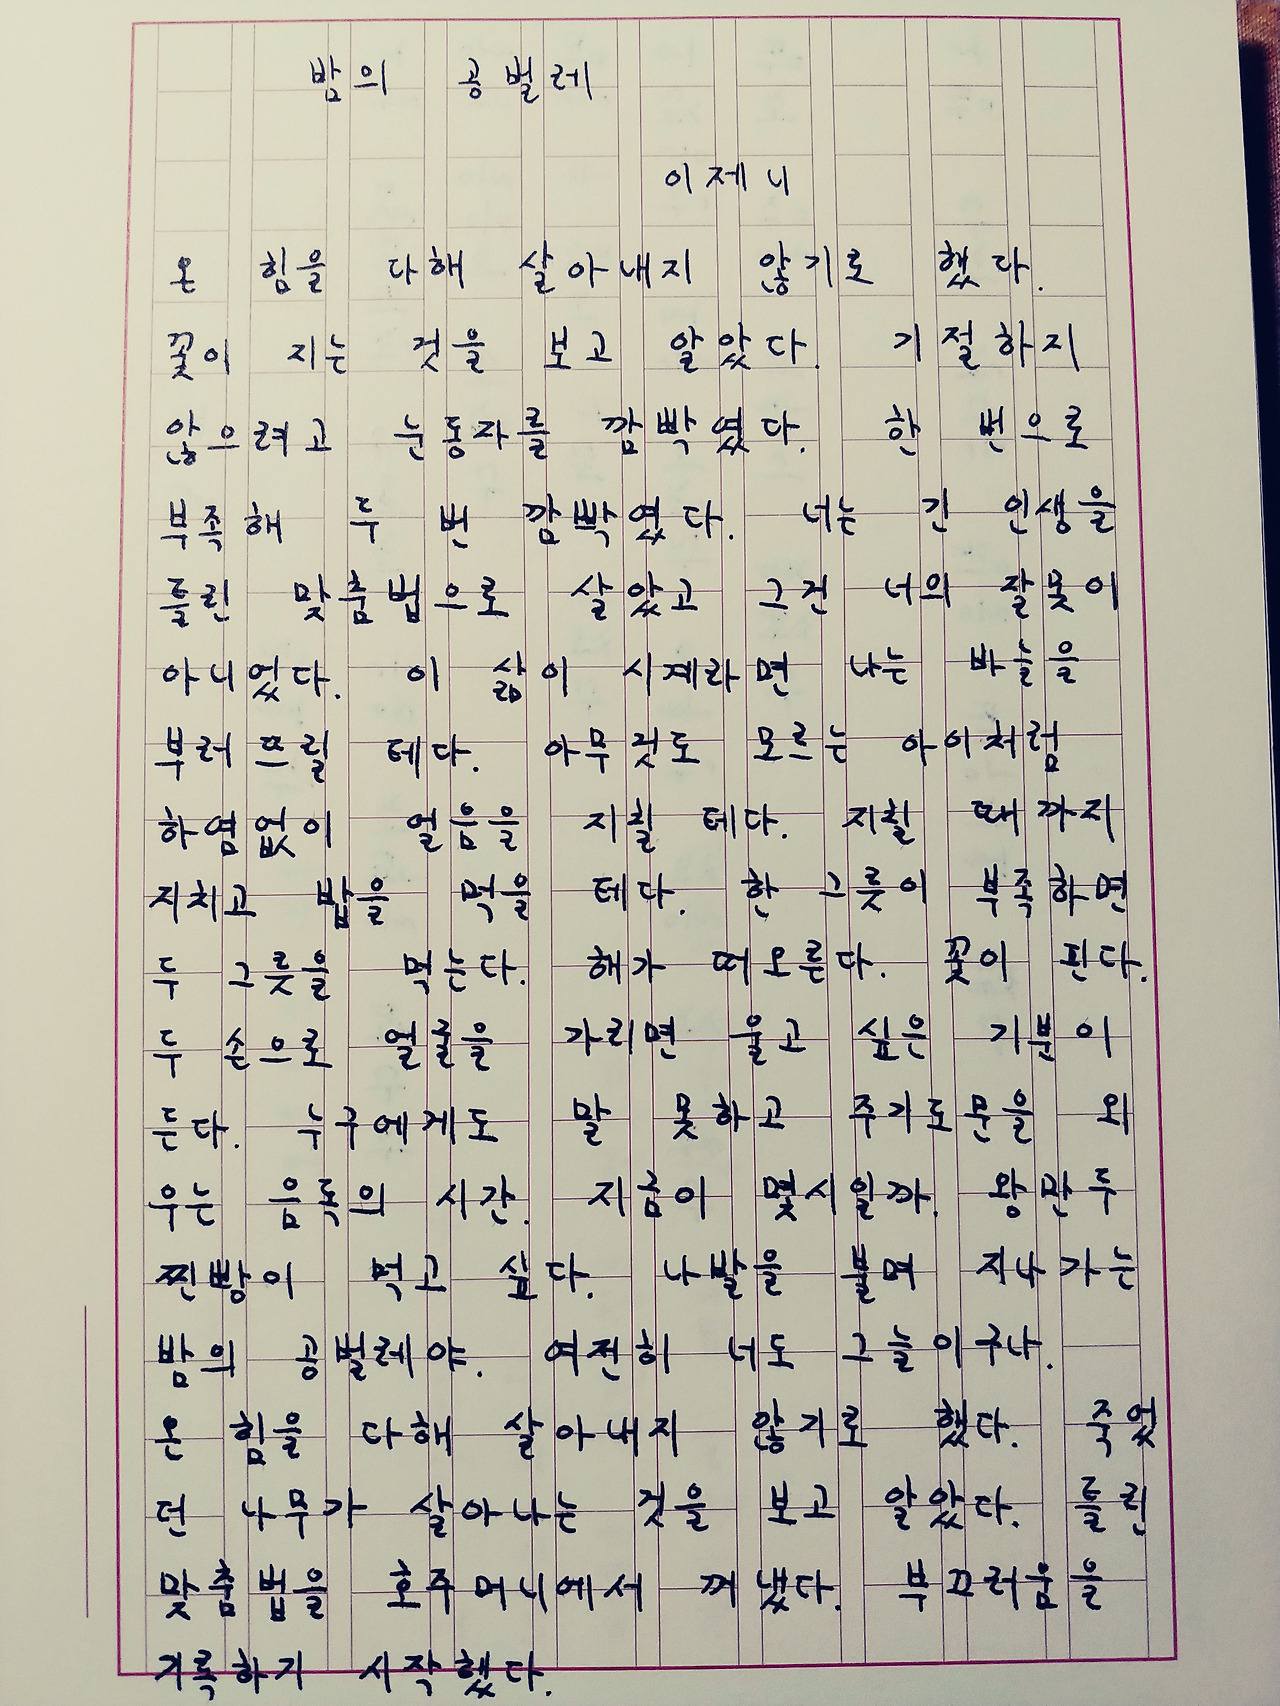 밤의 공벌레
이제니
온 힘을 다해 살아내지 않기로 했다.
꽃이 지는 것을 보고 알았다. 기절하지
않으려고 눈동자를 깜빡였다. 한 번으로
부족해 두 번 깜빡였다. 너는 긴 인생을
틀린 맞춤법으로 살았고 그건 너의 잘못이
아니었다. 이 삶이 시계라면 나는 바늘을
부러뜨릴 테다. 아무것도 모르는 아이처럼
하염없이 얼음을 지칠 테다. 지칠 때까지
지치고 밥을 먹을 테다. 한 그릇이 부족하면
두 그릇을 먹는다. 해가 떠오른다. 꽃이 핀다.
두 손으로 얼굴을 가리면 울고 싶은 기분이
든다. 누구에게도 말 못하고 주기도문을 외
우는 음독의 시간. 지금이 몇시일까. 왕만두
찐빵이 먹고 싶다. 나발을 불며 지나가는
밤의 공벌레야. 여전히 너도 그늘이구나.
온 힘을 다해 살아내지 않기로 했다. 죽었
던 나무가 살아나는 것을 보고 알았다. 틀린
맞춤법을 호주머니에서 꺼냈다. 부끄러움을
기록하기 시작했다.